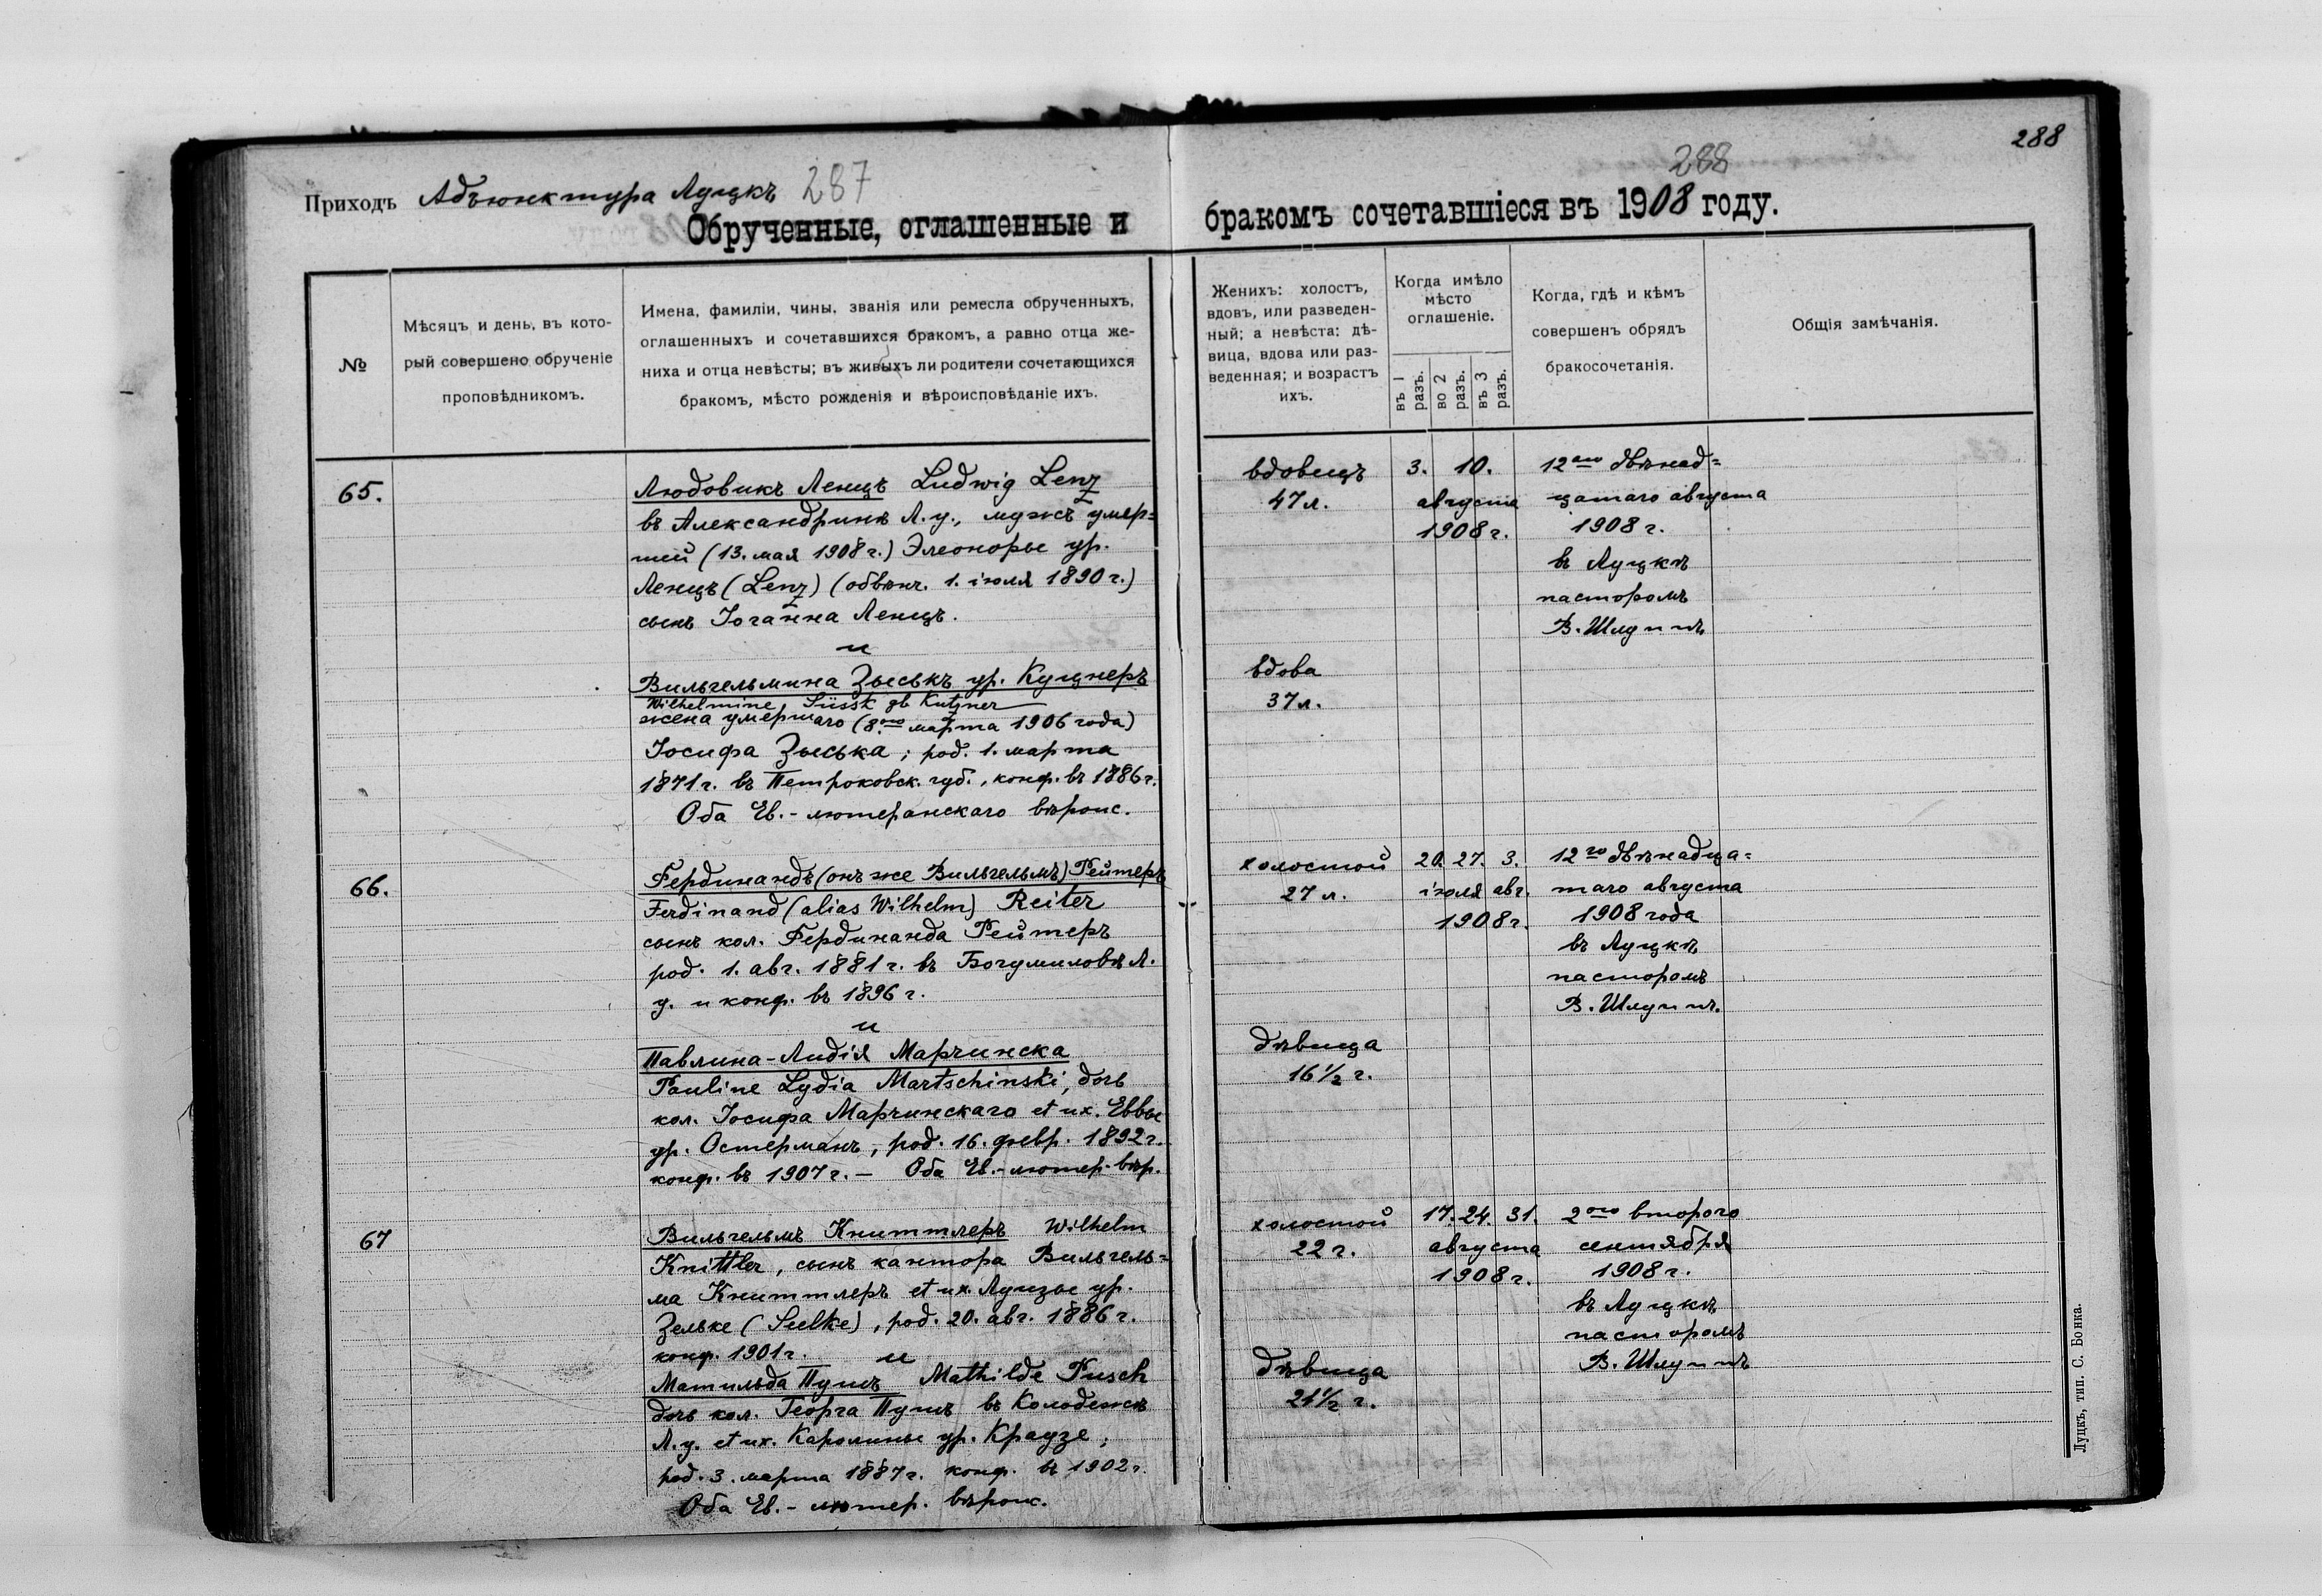 288
288
Приходъ Адъюнктура Луцкъ 287
Обрученные, оглашенные и бракомъ сочетавшіеся въ 1908 году.
№
Мѣсяцъ и день, въ кото-
рый совершено обрученіе
проповѣдникомъ.
Имена, фамиліи, чины, званія или ремесла обрученныхъ,
оглашенныхъ и сочетавшихся бракомъ, а равно отца же-
ниха и отца невѣсты; въ живыхъ ли родители сочетающихся
бракомъ, мѣсто рожденія и вѣроисповѣданіе ихъ.
Женихъ: холостъ,
вдовъ, или разведен-
ный; а невѣста: дѣ-
вица, вдова или раз-
веденная; и возрастъ
ихъ.
Когда имѣло
мѣсто
оглашеніе.
въ 1 разъ.
во 2 разъ.
въ 3 разъ.
Когда, гдѣ и кѣмъ
совершенъ обрядъ
бракосочетанія.
Общія замѣчанія.
65.
Людовикъ Ленцъ Ludwig Lenz
въ Александринѣ Л. у., мужъ умер=
шей (13. мая 1908 г.) Элеоноры ур.
Ленцъ (Lenz) (обвѣнч. 1. іюля 1890 г.)
сынъ Іоганна Ленцъ.
и
Вильгельмина Зыськъ ур. Куцнеръ
Wilhelmine Süssk gb Kutzner
жена умершаго (8ого марта 1906 года)
Іосифа Зыська; род. 1. марта
1871 г. въ Петроковск. губ., конф. въ 1886 г.
Оба Ев.-лютеранскаго вѣроис.
вдовецъ
47 л.
вдова
37 л.
3. 10.
августа
1908 г.
12аго двѣнад=
цатаго августа
1908 г.
въ Луцкѣ
пасторомъ
В. Шлуппъ
66.
Фердинандъ (онъ же Вильгельмъ) Рейтеръ
Ferdinand (alias Wilhelm) Reiter
сынъ кол. Фердинанда Рейтеръ
род. 1. авг. 1881 г. въ Богумиловѣ Л.
у. и конф. въ 1896 г.
и
Павлина-Лидія Марчинска
Pauline Lydia Martschinski, дочь
кол. Іосифа Марчинскаго et ux. Еввы
ур. Остерманъ, род. 16. февр. 1892 г.
конф. въ 1907 г. — Оба Ев.-лютер. вѣр.
холостой
27 л.
дѣвица
16 1/2 г.
20. 27. 3.
іюля авг.
1908 г.
12го двѣнадца=
таго августа
1908 года
въ Луцкѣ
пасторомъ
В. Шлуппъ.
67
Вильгельмъ Книттлеръ Wilhelm
Knittler, сынъ кантора Вильгель=
ма Книттлеръ et ux. Луизы ур.
Зельке (Seelke), род. 20. авг. 1886 г.
конф. 1901 г.
и
Матильда Пушъ Mathilde Pusch
дочь кол. Георга Пушъ въ Колодежѣ
Л. у. et ux. Каролины ур. Краузе;
род. 3. марта 1887 г. конф. въ 1902 г.
Оба Ев.-лютер. вѣроис.
холостой
22 г.
дѣвица
21 1/2 г.
17. 24. 31.
августа
1908 г.
2ого второго
сентября
1908 г.
въ Луцкѣ
пасторомъ
В. Шлуппъ
Луцкъ, тип. С. Бонка.